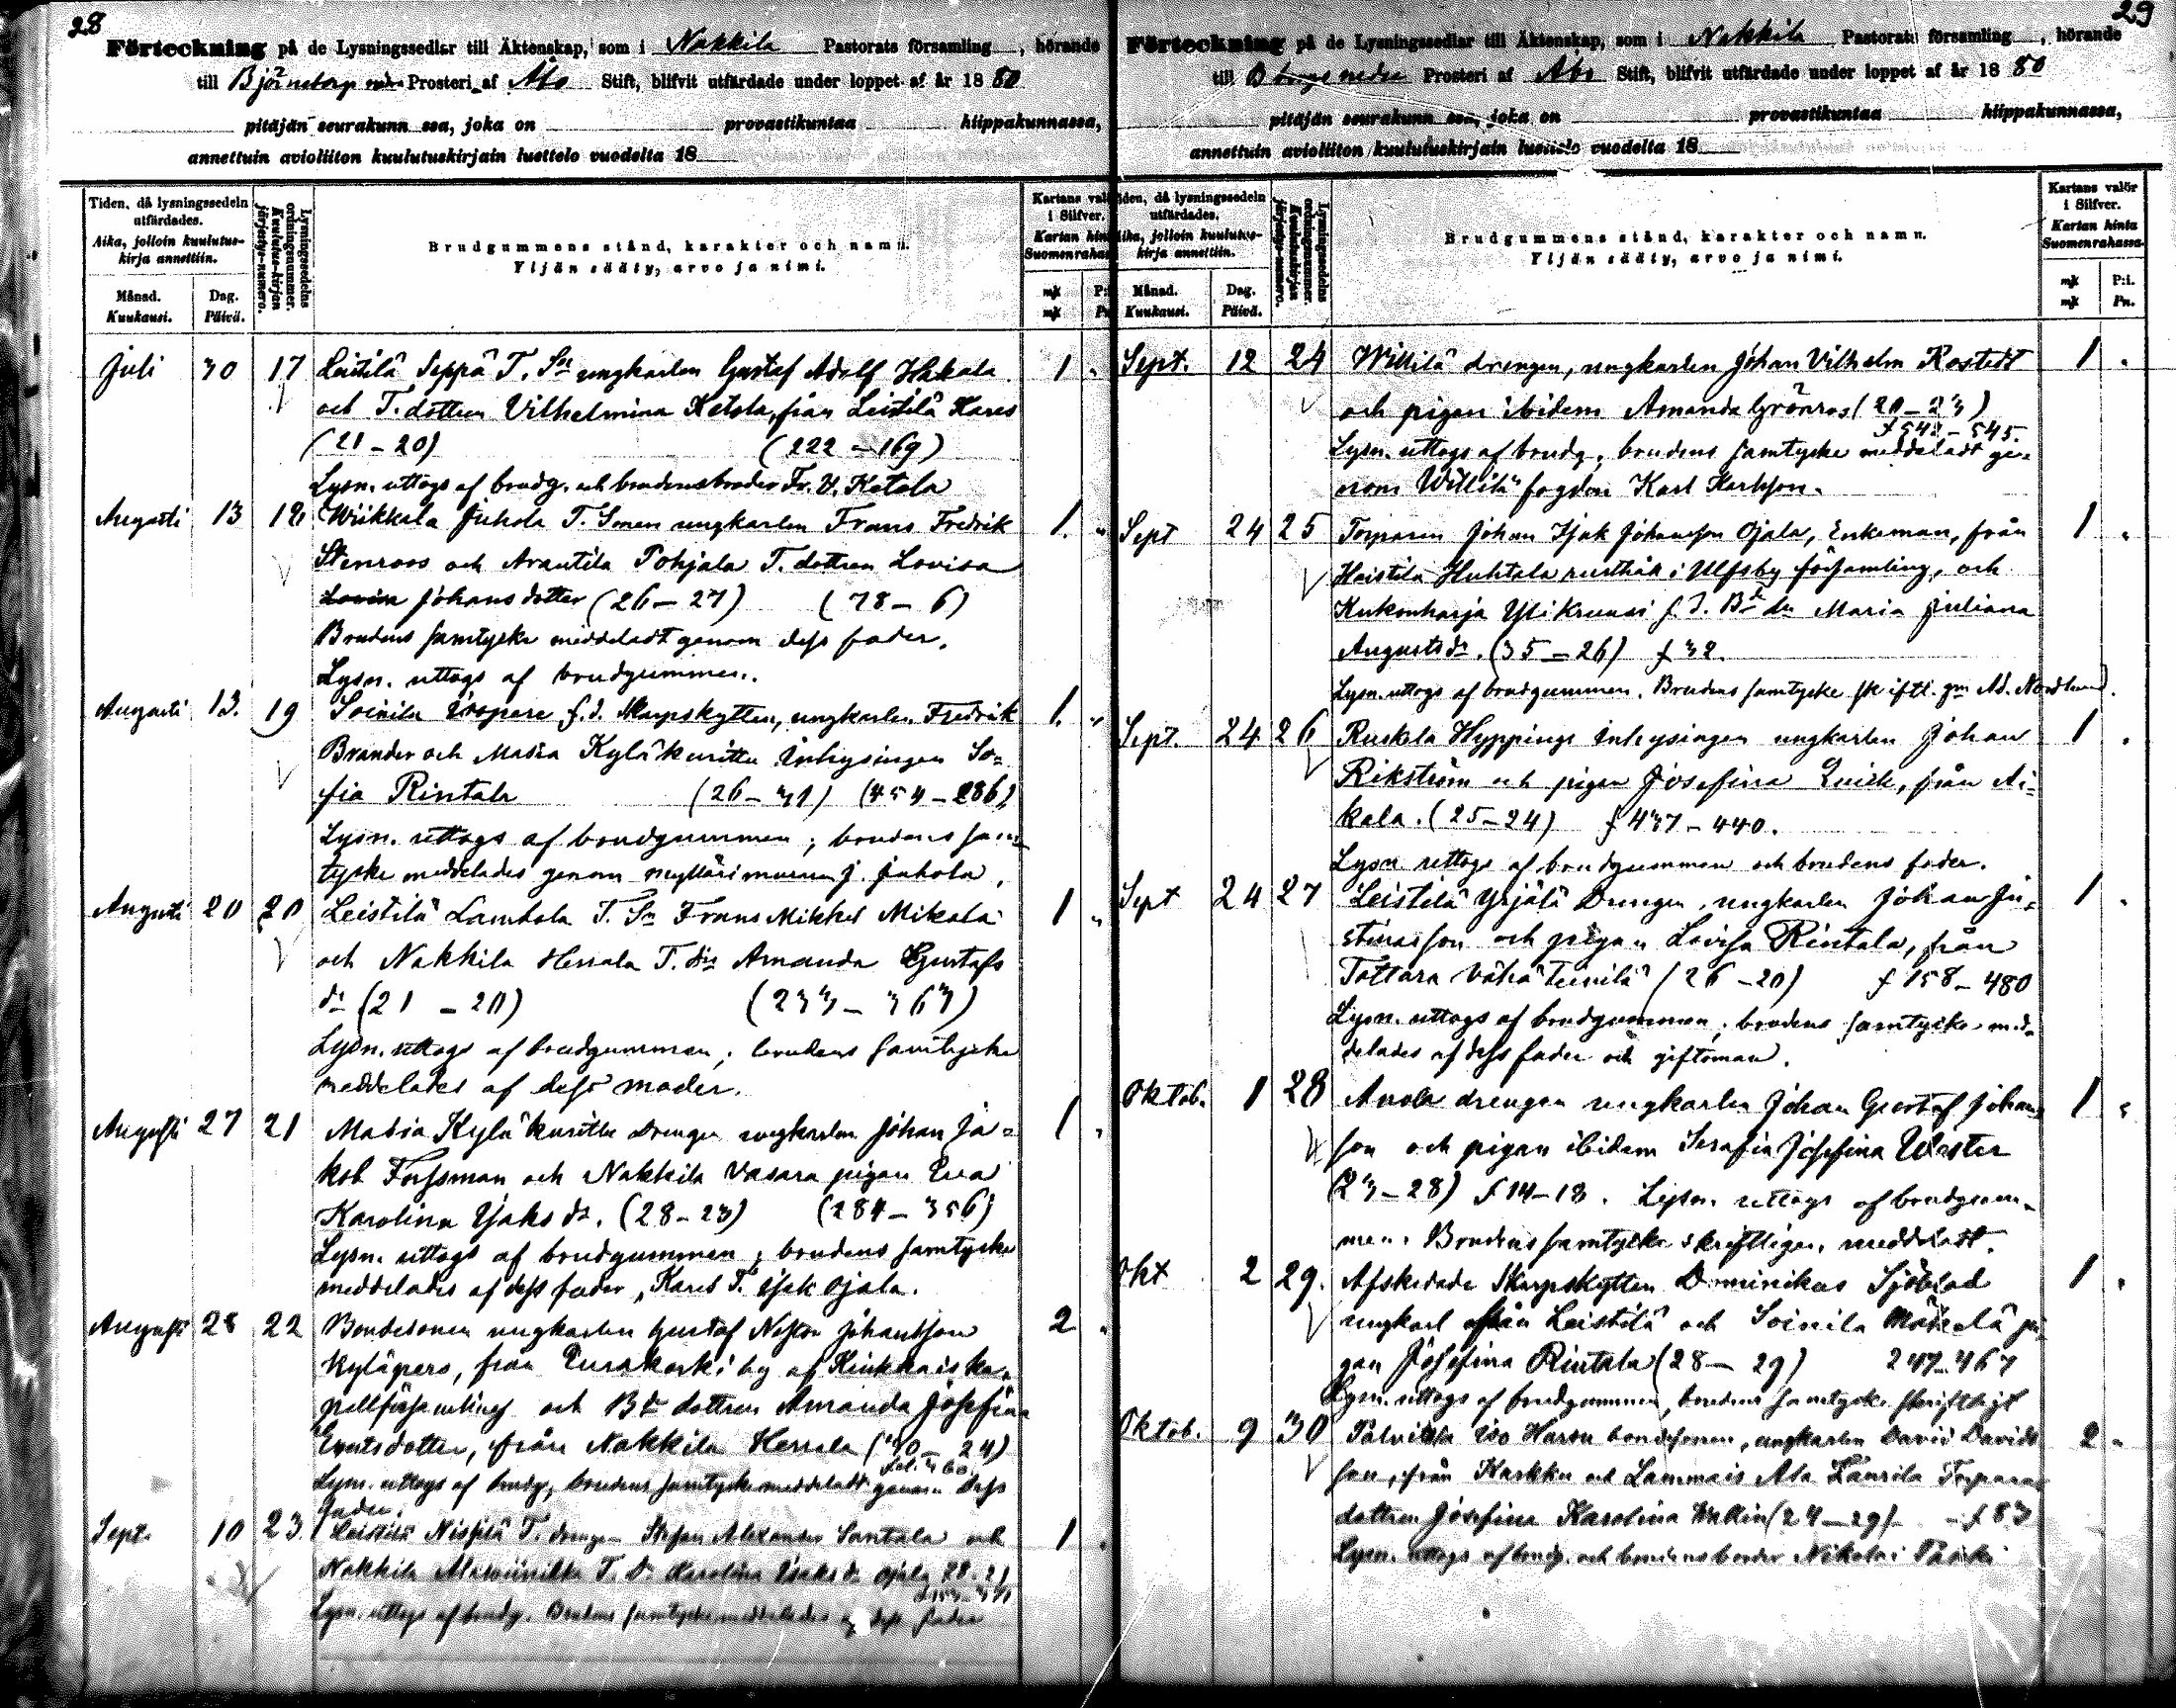 28
Förteckning på de Lysningssedlar till Äktenskap, som i Nakkila Pastorats församling, hörande
till Björneborgs nedre Prosteri af Åbo Stift, blifvit utfärdade under loppet af år 1880
pitäjän seurakunnassa, joka on provastikuntaa hiippakunnassa,
annettuin avioliiton kuulutuskirjain luettelo vuodelta 18
Tiden, då lysningssedeln utfärdades.
Aika, jolloin kuulutuskirja annettiin.
Månad. Kuukausi.
Dag. Päivä.
Lysningssedelns ordningsnummer.
Kuulutus-kirjan järjestys-numero.
Brudgummens stånd, karakter och namn.
Yljän sääty, arvo ja nimi.
Kartans valör i Silfver.
Kartan hinta Suomenrahassa
mk P:i.
mk Pn.
Juli 30 17 Leistilä Seppä T. Sn ungkarlen Gustaf Adolf Hakala 1 "
och T. dottren Vilhelmina Ketola, från Leistilä Kares
(21-20) (222-169)
Lysn. uttogs af brudg. och brudens broder Fr. V. Ketola
Augusti 13 18 Wiikkala Juhola T. Sonen ungkarlen Frans Fredrik 1. "
Stenroos och Arantila Pohjala T. dottren Lovisa
Lovisa Johansdotter (26-27) (78-6)
Brudens samtycke meddeladt genom dess fader.
Lysn. uttogs af brudgummen.
Augusti 13. 19 Soinila f.d. Skarpskytten, ungkarlen Fredrik 1. "
Brander och Masia Kyläkuritta Inhysingen So-
fia Rintala (26-31) (454-286)
Lysn. uttogs af brudgummen; brudens sam-
tycke meddelades genom J. Juhola.
Augusti 20 20 Leistilä Lambola T. Sn Frans Mikkel Mikola 1 "
och Nakkila Herrala T. dr Amanda Gustafs
dr (21-20) (233-363)
Lysn. uttogs af brudgummen; brudens samtycke
meddelades af dess moder.
Augusti 27 21 Masia Kyläkuritta Drengen ungkarlen Johan Ja- 1 "
kob Forssman och Nakkila Vasara pigan Eva
Karolina Isaks dr. (28-23) (284-356)
Lysn. uttogs af brudgummen; brudens samtycke
meddelades af dess fader, Kares T. Isak Ojala.
Augusti 28 22 Bondesonen ungkarlen Gustaf Nestor Johansson 2 "
Kyläpero, från Eurakoski by af Kiukkais ka-
pellförsamling och Bd dottren Amanda Josefina
dotter, från Nakkila Herrala (30-24)
Lysn. uttogs af brudg, brudens samtycke meddeladt genom dess
fader.
Sept. 10 23. Leistilä T. drengen Stefan Alexander Santala och 1 "
Nakkila T. Dr Karolina Isaks dr Ojala 28-21
Lysn. uttogs af brudg. Brudens samtycke meddelades af dess fader
29
Förteckning på de Lysningssedlar till Äktenskap, som i Nakkila Pastorats församling, hörande
till Bborgs nedre Prosteri af Åbo Stift, blifvit utfärdade under loppet af år 1880
pitäjän seurakunnassa, joka on provastikuntaa hiippakunnassa,
annettuin avioliiton kuulutuskirjain luettelo vuodelta 18
Tiden, då lysningssedeln utfärdades.
Aika, jolloin kuulutuskirja annettiin.
Månad. Kuukausi.
Dag. Päivä.
Lysningssedelns ordningsnummer.
Kuulutuskirjan järjestys-numero.
Brudgummens stånd, karakter och namn.
Yljän sääty, arvo ja nimi.
Kartans valör i Silfver.
Kartan hinta Suomenrahassa.
mk P:i.
mk Pn.
Sept. 12 24 Willilä drengen, ungkarlen Johan Vilhelm Rostedt 1 "
och pigan ibidem Amanda Grönroos (20-23)
f 542-545.
Lysn. uttogs af brudg., brudens samtycke meddeladt ge-
nom Willilä fogden Karl Karlsson.
Sept 24 25 Torparen Johan Isak Johansson Ojala, Enkeman, från 1 "
Haistila Huhtala rusthåll i Ulfsby församling, och
Kukonharja Ylikruusi f.d. Maria Juliana
Augustsdr. (35-26) f 32.
Lysn. uttogs af brudgummen. Brudens samtycke skriftl. gm Ad. Nordlund.
Sept. 24 26 Ruskila Hyppinge inhysingen ungkarlen Johan 1 "
Rikström och pigan Josefina Quick, från Ai-
kala. (25-24) f 437-440.
Lysn uttogs af brudgummen och brudens fader.
Sept 24 27 Leistilä Yrjälä Drengen, ungkarlen Johan Ju- 1 "
stinasson och pigan Lovisa Rintala, från
Tattara Vähä Teinilä (26-20) f 158-480
Lysn. uttogs af brudgummen; brudens samtycke med-
delades af dess fader och giftoman.
Oktob. 1 28 Anola drengen ungkarlen Johan Gustaf Johans- 1 "
son och pigan ibidem Serafia Josefina Wester
(23-28) f 14-18. Lysn. uttogs af brudgum-
men. Brudens samtycke skriftligen meddeladt.
Okt 2 29. Afskedade Skarpskytten Dominikus Sjöblad 1 "
ungkarl från Leistilä och Soinila Mäkelä pi-
gan Josefina Rintala (28-29) 247-467
Lysn. uttogs af brudgummen, brudens samtycke skriftligt
Oktob. 9 30 Iso Harsu bondesonen, ungkarlen David Davids- 2 "
son, från Karkku och Lammais Ala Laurila Torpare-
dottren Josefina Karolina Wallin (24-29) - f 83
Lysn. uttogs af brudg. och brudens broder Nikolai